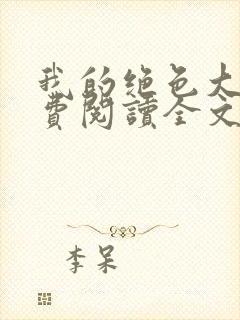 我的绝色大
費閱讀全文
李呆